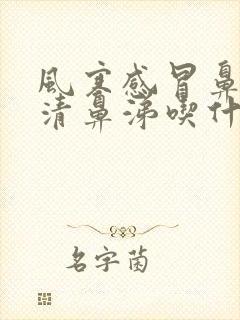 風寒感冒鼻
清鼻涕喫什
名字菌